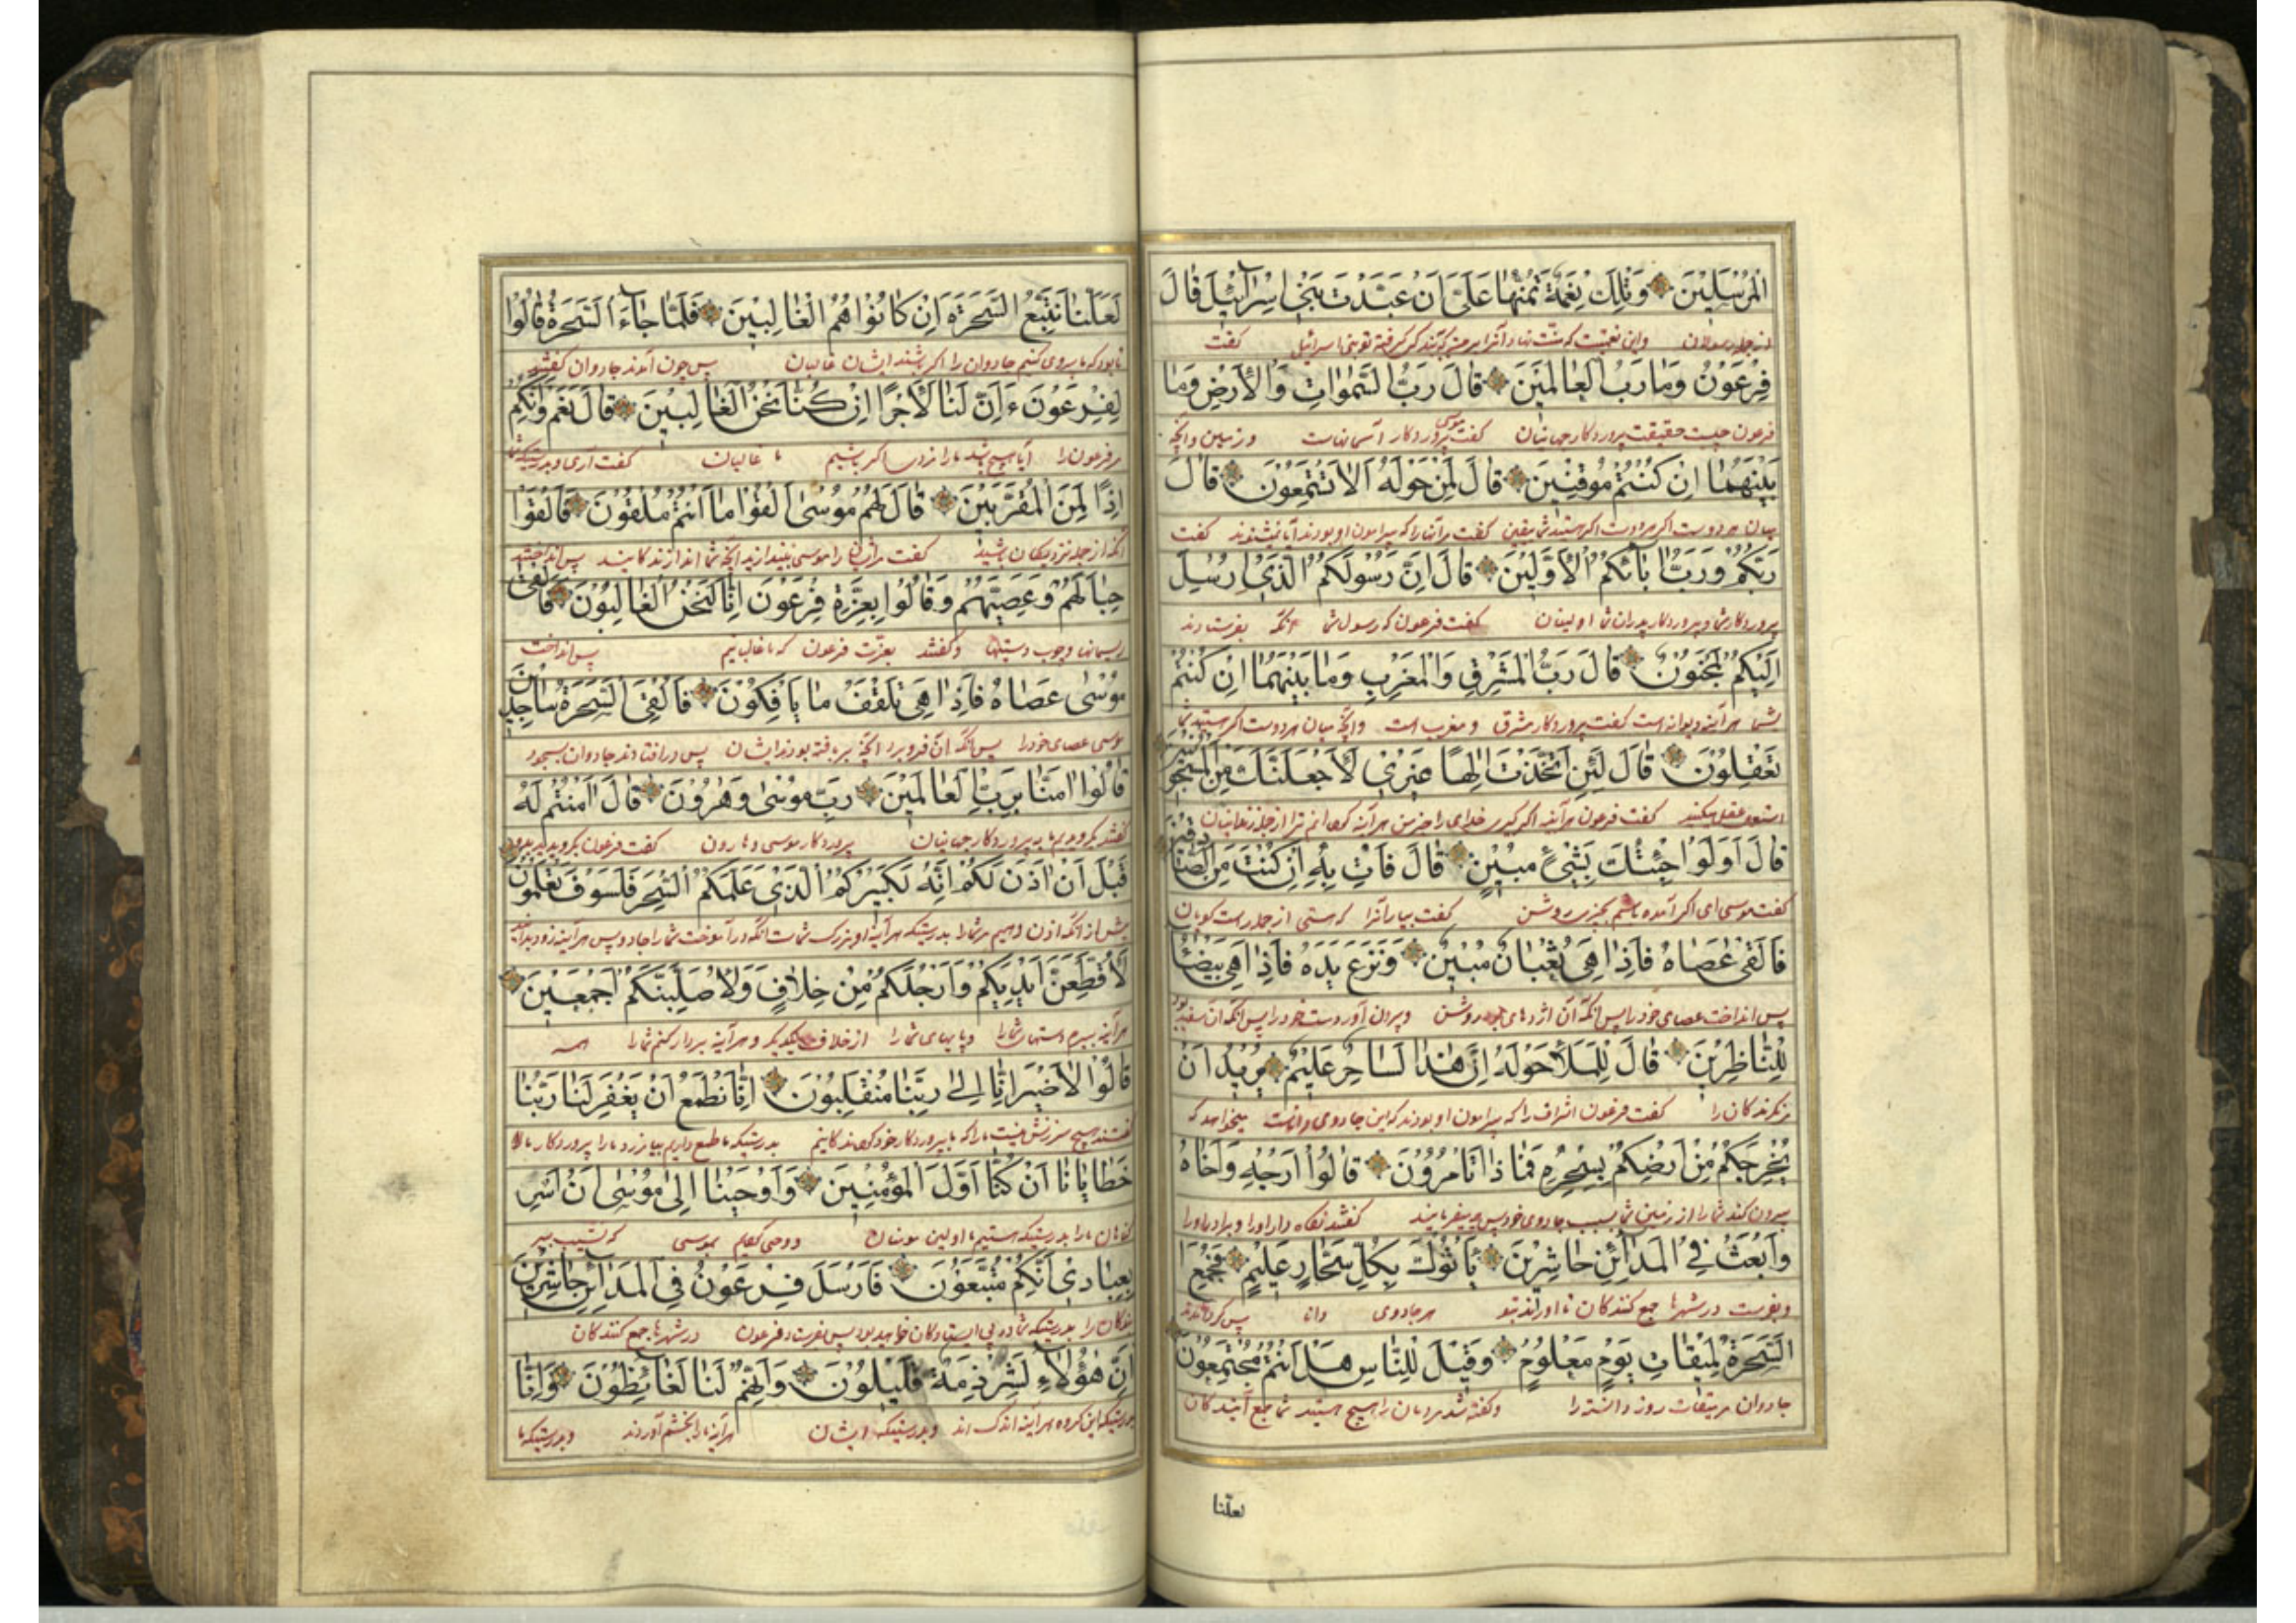 الْمُرْسَلِينَ وَتِلْكَ نِعْمَةٌ تَمُنُّهَا عَلَيَّ أَنْ عَبَّدْتَ بَنِي إِسْرَآئِيلَ قَالَ
از جمله رسولان و این نعمتیست که منت نهاد آنرا بر من که بنده گرفته تو بنی اسرائیل گفت
فِرْعَوْنُ وَمَا رَبُّ الْعَالَمِينَ قَالَ رَبُّ السَّمٰوَاتِ وَالْأَرْضِ وَمَا
فرعون چیست حقیقت پروردکار جهانیان گفت موسی پروردکار آسمانهاست و زمین و انچه
بَيْنَهُمَا اِنْ كُنْتُمْ مُوقِنِينَ قَالَ لِمَنْ حَوْلَهُ اَلَا تَسْتَمِعُونَ قَالَ
میان هر دوست اکر هستید شما یقین گفت مر آنها را که پیرامون او بودند آیا نمیشنوند گفت
رَبُّكُمْ وَرَبُّ اٰبَآئِكُمُ الْاَوَّلِينَ قَالَ اِنَّ رَسُولَكُمُ الَّذِي اُرْسِلَ
پروردکار شما و پروردکار پدران شما اولینان گفت فرعون که رسول شما آنکه بفرستادند
اِلَيْكُمْ لَمَجْنُونٌ قَالَ رَبُّ الْمَشْرِقِ وَالْمَغْرِبِ وَمَا بَيْنَهُمَا اِنْ كُنْتُمْ
بشما هر آینه دیوانه است گفت پروردکار مشرق و مغرب است و انچه میان هر دوست اکر هستید شما
تَعْقِلُونَ قَالَ لَئِنِ اتَّخَذْتَ اِلٰهًا غَيْرِي لَاَجْعَلَنَّكَ مِنَ الْمَسْجُونِينَ
گفت فرعون هر آینه اکر گیری خدای را جز من هر آینه کردانم ترا از جمله زندانیان
قَالَ اَوَلَوْ جِئْتُكَ بِشَيْءٍ مُبِينٍ قَالَ فَاْتِ بِهِ اِنْ كُنْتَ مِنَ الصَّادِقِينَ
گفت موسی ای اکر آمده باشم بچیزی روشن گفت بیار آنرا که هستی از جمله راست کویان
فَاَلْقٰى عَصَاهُ فَاِذَا هِيَ ثُعْبَانٌ مُبِينٌ وَنَزَعَ يَدَهُ فَاِذَا هِيَ بَيْضَآءُ
پس انداخت عصای خود را پس آنکه آن اژدهای روشن و بیرون آورد دست خود را پس آنکه آن سفید بود
لِلنَّاظِرِينَ قَالَ لِلْمَلَاِ حَوْلَهُ اِنَّ هٰذَا لَسَاحِرٌ عَلِيمٌ يُرِيدُ اَنْ
گفت فرعون اشراف را که پیرامون او بودند که این جادوی داناست میخواهد که
يُخْرِجَكُمْ مِنْ اَرْضِكُمْ بِسِحْرِهِ فَمَاذَا تَاْمُرُونَ قَالُوا اَرْجِهْ وَاَخَاهُ
بیرون کند شما را از زمین شما بسبب جادوی خود پس چه میفرمایید گفتند نگاه دار او را و برادر او را
وَابْعَثْ فِي الْمَدَآئِنِ حَاشِرِينَ يَاْتُوكَ بِكُلِّ سَحَّارٍ عَلِيمٍ فَجُمِعَ
و بفرست در شهرها جمع کنندگان تا اورند بتو هر جادوی دانا پس کرد آمدند
السَّحَرَةُ لِمِيقَاتِ يَوْمٍ مَعْلُومٍ وَقِيلَ لِلنَّاسِ هَلْ اَنْتُمْ مُجْتَمِعُونَ
جادوان میقات روز دانسته را و گفته شد مردمان را هیچ هستید شما جمع آیندکان
لعلنا
لَعَلَّنَا نَتَّبِعُ السَّحَرَةَ اِنْ كَانُوا هُمُ الْغَالِبِينَ فَلَمَّا جَآءَ السَّحَرَةُ قَالُوا
تا بود که ما پیروی کنیم جادوان را اکر باشند ایشان غالبان پس چون آمدند جادوان گفتند
لِفِرْعَوْنَ ءَاِنَّ لَنَا لَاَجْرًا اِنْ كُنَّا نَحْنُ الْغَالِبِينَ قَالَ نَعَمْ وَاِنَّكُمْ
مر فرعون را آیا هیچ باشد ما را مزد اکر باشیم ما غالبان گفت آری و بدرستیکه شما
اِذًا لَمِنَ الْمُقَرَّبِينَ قَالَ لَهُمْ مُوسٰى اَلْقُوا مَا اَنْتُمْ مُلْقُونَ فَاَلْقَوْا
آنکه از جمله نزدیکان باشید گفت مر ایشان را موسی بیندازید انچه شما اندازندکانید پس انداختند
حِبَالَهُمْ وَعِصِيَّهُمْ وَقَالُوا بِعِزَّةِ فِرْعَوْنَ اِنَّا لَنَحْنُ الْغَالِبُونَ فَاَلْقٰى
ریسمانها و چوب دستیها و گفتند بعزت فرعون که ما غالبانیم پس انداخت
مُوسٰى عَصَاهُ فَاِذَا هِيَ تَلْقَفُ مَا يَاْفِكُونَ فَاُلْقِيَ السَّحَرَةُ سَاجِدِينَ
موسی عصای خود را پس آنکه آن فرو برد انچه بر بافته بودند ایشان پس در افتادند جادوان بسجود
قَالُوا اٰمَنَّا بِرَبِّ الْعَالَمِينَ رَبِّ مُوسٰى وَهٰرُونَ قَالَ اٰمَنْتُمْ لَهُ
گفتند بگرویدیم ما به پروردکار جهانیان پروردکار موسی و هارون گفت فرعون بگرویدید
قَبْلَ اَنْ اٰذَنَ لَكُمْ اِنَّهُ لَكَبِيرُكُمُ الَّذِي عَلَّمَكُمُ السِّحْرَ فَلَسَوْفَ تَعْلَمُونَ
پیش از آنکه اذن دهیم مر شما را بدرستیکه هر آینه او بزرک شماست آنکه در آموخت شما را جادو پس هر آینه زود بدانید
لَاُقَطِّعَنَّ اَيْدِيَكُمْ وَاَرْجُلَكُمْ مِنْ خِلَافٍ وَلَاُصَلِّبَنَّكُمْ اَجْمَعِينَ
هر آینه ببرم دستهای شما را و پایهای شما را از خلاف یکدیکر و هر آینه بر دار کنم شما را همه
قَالُوا لَا ضَيْرَ اِنَّا اِلٰى رَبِّنَا مُنْقَلِبُونَ اِنَّا نَطْمَعُ اَنْ يَغْفِرَ لَنَا رَبُّنَا
گفتند هیچ سرزنش نیست ما را که ما بپروردکار خود بدرستیکه ما طمع داریم بیامرزد ما را پروردکار ما
خَطَايَانَا اَنْ كُنَّا اَوَّلَ الْمُؤْمِنِينَ وَاَوْحَيْنَا اِلٰى مُوسٰى اَنْ اَسْرِ
کناهان ما را بدرستیکه هستیم ما اولین مؤمنان و وحی کردیم بموسی که بشب ببر
بِعِبَادِي اِنَّكُمْ مُتَّبَعُونَ فَاَرْسَلَ فِرْعَوْنُ فِي الْمَدَآئِنِ حَاشِرِينَ
بندکان را بدرستیکه شما در پی پس بفرستاد فرعون در شهرها جمع کنندکان
اِنَّ هٰؤُلَآءِ لَشِرْذِمَةٌ قَلِيلُونَ وَاِنَّهُمْ لَنَا لَغَآئِظُونَ وَاِنَّا
بدرستیکه این کروه هر آینه اندک اند و بدرستیکه ایشان هر آینه ما را بخشم آوردند و بدرستیکه ما